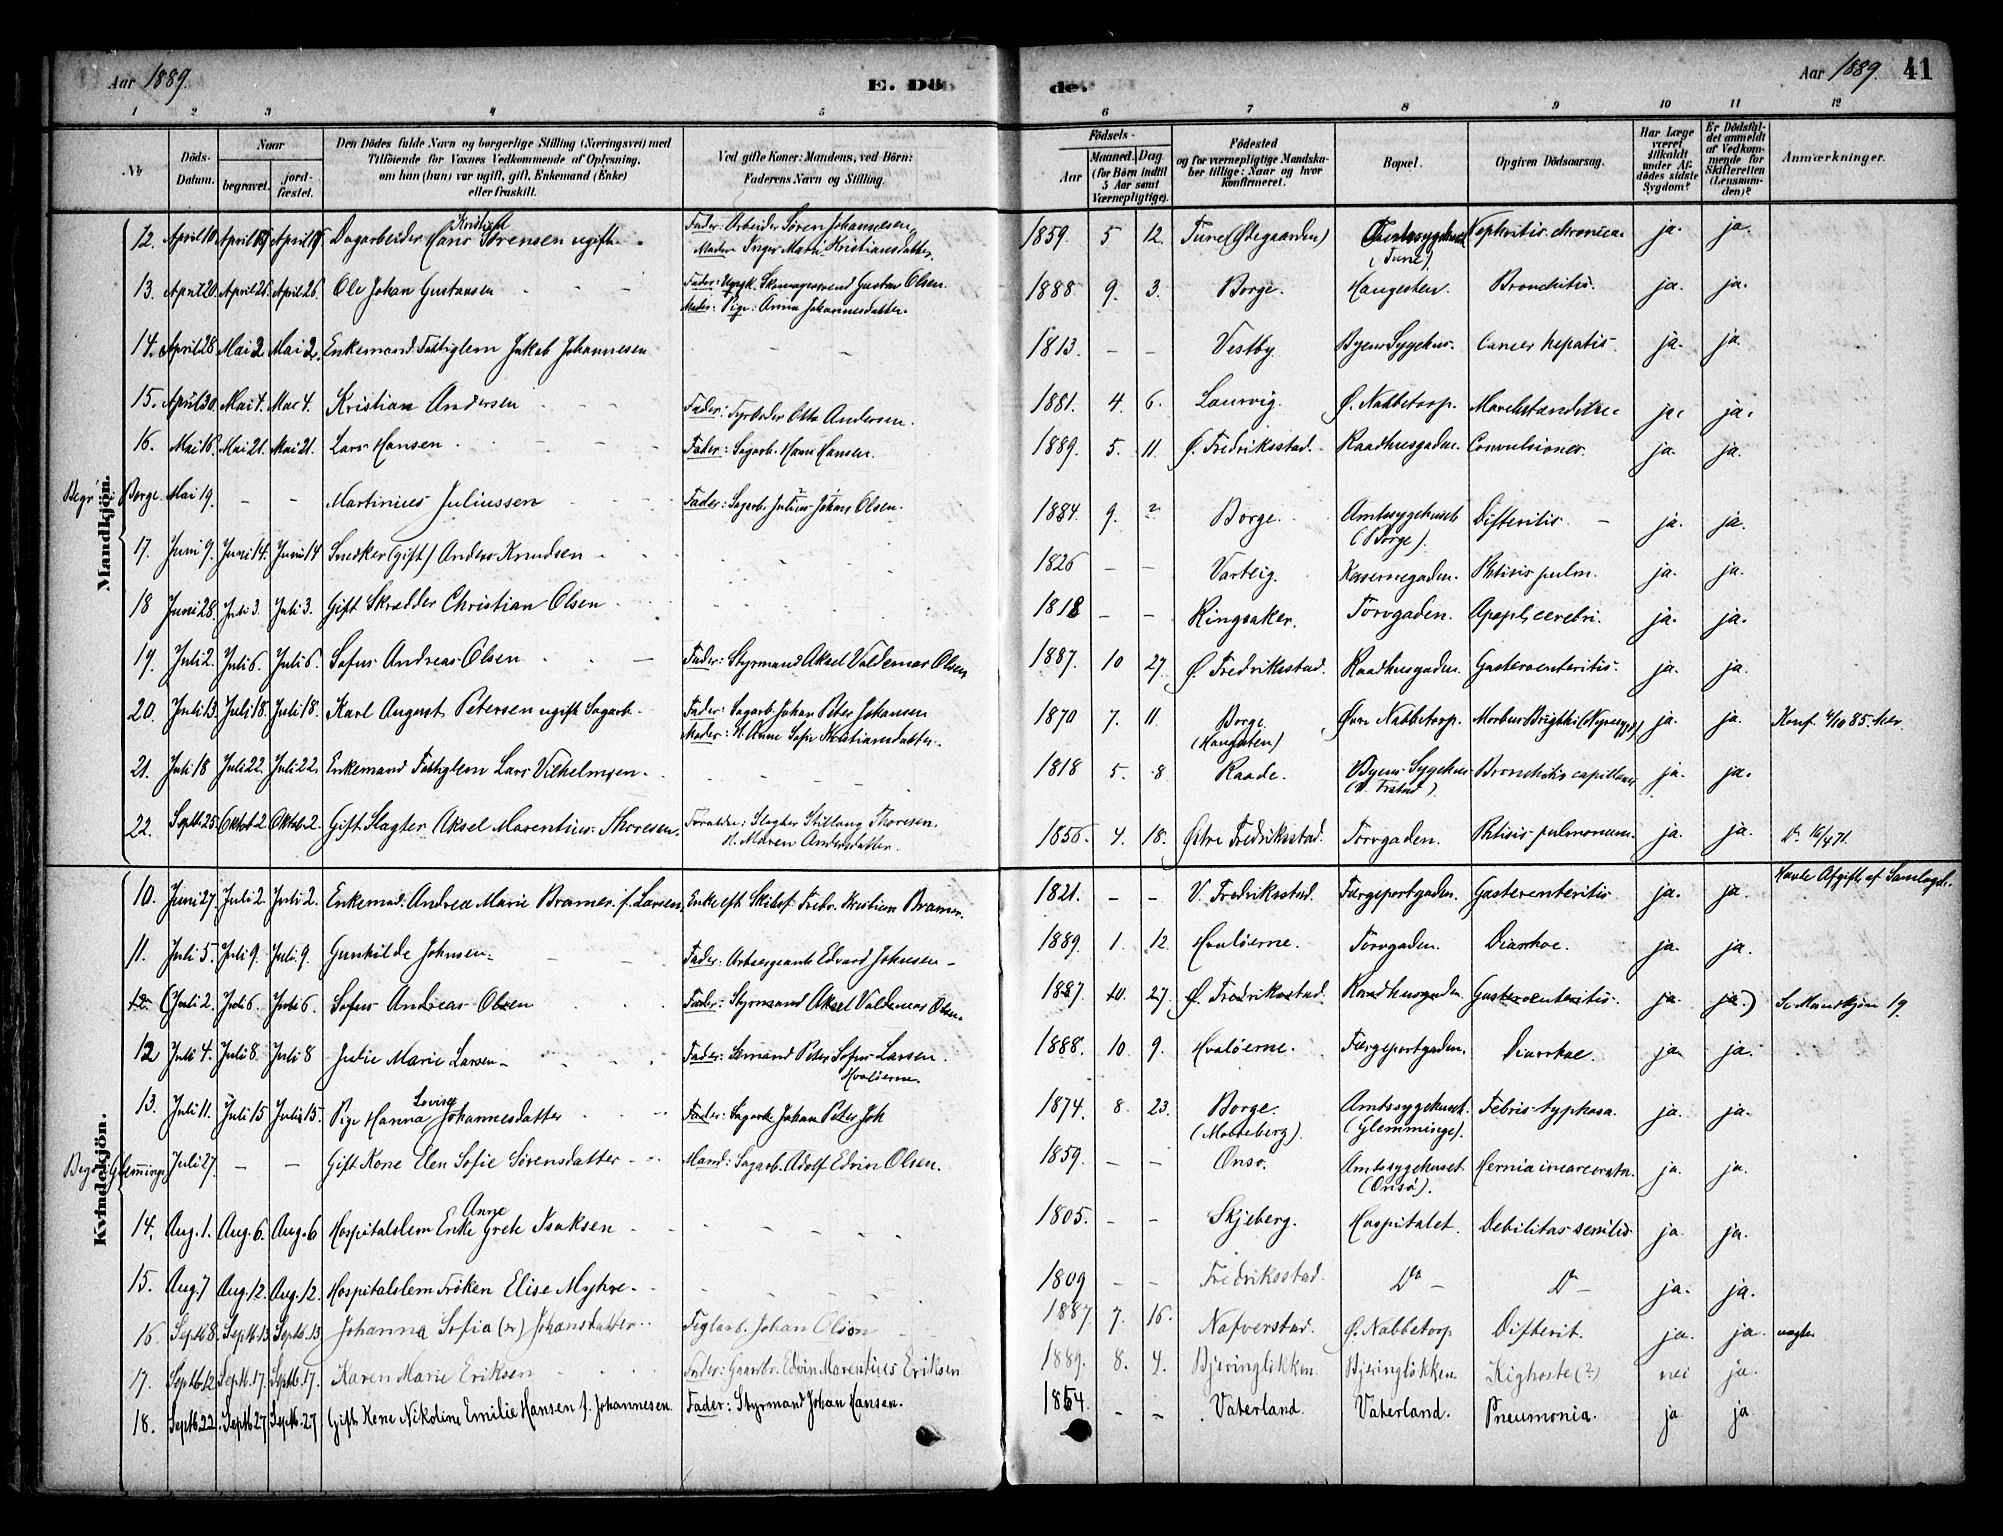 Aar 1889. E. Döde. Aar 1889. 41
1 2 3 4 5 6 7 8 9 10 11 12
№ Döds-Datum. Naar begravet. jordfæstet. Den Dödes fulde Navn og borgerlige Stilling (Næringsvei) med Tilföiende for Voxnes Vedkommende af Oplysning, om han (hun) var ugift, gift, Enkemand (Enke) eller fraskilt. Ved gifte Koner: Mandens, ved Börn: Faderens Navn og Stilling. Födsels- Aar Maaned. Dag. (for Börn indtil 5 Aar samt Værnepligtige). Födested og for værnepligtige Mandskaber tillige: Naar og hvor konfirmeret. Bopæl. Opgiven Dödsaarsag. Har Læge været tilkaldt under Afdödes sidste Sygdom? Er Dödsfaldet anmeldt af Vedkommende for Skifteretten (Lensmanden)? Anmærkninger.
Mandkjön.
12. April 10. April 19 April 19 Dagarbeider Hans Kristian Sörensen ugift Fader: Arbeider Sören Johannesen, Moder Inger Marie Kristiansdatter. 1859. 5 12. Tune (Ødegaarden) (Tune). Nephritis chronica. ja. ja.
13. April 20. April 26. April 26. Ole Johan Gustavsen Fader: Ungk. Skomagersvend Gustav Olsen. Moder: Pige: Anna Johannesdatter. 1888. 9. 3. Borge. Haugesten. Bronchitis. ja. ja.
14. April 28 Mai 2 Mai 2. Enkemand Fattiglem Jakob Johannesen 1813. – – Vestby. Byens Sygehus. Cancer hepatis. ja. ja
15. April 30. Mai 4. Mai 4. Kristian Andersen Fader: Fyrböder Otto Andersen. 1881. 4. 6. Laurvig. Ø. Nabbetorp. ja. ja.
16. Mai 16. Mai 21. Mai 21. Lars Hansen Fader: Sagarb. Hans Hansen. 1889. 5. 11. Ø. Fredriksstad. Raadhusgaden. Convulsioner. ja. ja.
Begr. i Borge. Mai 19. – – Martinius Juliussen Fader: Sagarb. Julius Johans Olsen. 1884. 9. 2 Borge. Amtssygehuset (Borge). Difteritis ja. ja.
17. Juni 9. Juni 14. Juni 14 Snedker (gift) Anders Knudsen 1826 – – Varteig. Kasernegaden. Phtisis pulm. ja. ja.
18 Juni 28. Juli 3. Juli 3. Gift Skrædder Christian Olsen 1818 – – Ringsaker. Torvgaden. Apopl. cerebri. ja. ja.
19. Juli 2. Juli 6 Juli 6. Sofus Andreas Olsen Fader: Styrmand Aksel Valdemar Olsen 1887. 10 27. Ø. Fredriksstad. Raadhusgaden. Gasteroenteritis. ja. ja.
20. Juli 13. Juli 18. Juli 18. Karl August Petersen ugift Sagarb. Fader: Sagarb. Johan Peter Johansen Moder: H. Anne Sofie Kristiansdatter. 1870 7. 11. Borge (Haugesten) Øvre Nabbetorp. Morbus Brightii ja. ja. Konf. 4/10 85. her
21. Juli 18 Juli 22. Juli 22. Enkemand Fattiglem Lars Vilhelmsen. 1818 5. 8 Raade. Byens Sygehus Bronchitis capillaris ja. ja.
22. Septb. 25. Oktob. 2. Oktob. 2. Gift Slagter Aksel Marentius Thoresen. Forældre: Slagter Thoresen. H. Maren Andersdatter. 1856. 4. 18. Østre Fredriksstad. Torvgaden. Phtisis pulmonum. ja. ja. Do 16/4 71.
Kvindekjön.
10. Juni 27. Juli 2. Juli 2. Enkemad. Andrea Marie Bramer f. Larsen. Enke eft. Skibsf. Fredr. Kristian Bramer. 1821. – – V. Fredriksstad. Færgeportgaden. Gasterenteritis ja. ja. Havde Afgift af Samlaget.
11. Juli 5. Juli 9. Juli 9. Gunhilde Johnsen Fader: Edvard Johnsen 1889. 1. 12. Hvalöerne. Torvgaden. Diarrhoe. ja. ja.
12 (Juli 2. Juli 6. Juli 6. Sofus Andreas Olsen Fader: Styrmand Aksel Valdemar Olsen. 1887. 10. 27. Ø. Fredriksstad. Raadhusgaden. Gasteroenteritis. ja. ja.) Se Mandkjön 19.
12 Juli 4. Juli 8. Juli 8 Julie Marie Larsen Fader: Sömand Peter Sofus Larsen. Hvalöerne. 1888. 10. 9. Hvalöerne. Færgeportgaden. Diarrhoe. ja. ja.
13. Juli 11. Juli 15 Juli 15. Pige Hanna Lovise Johannesdatter Fader: Sagarb. Johan Peter Joh 1874. 8. 23. Borge. (Moteberg). Amtssygehuset. (Glemminge). Febris typhosa. ja. ja.
Begr. i Glemminge Juli 27. – – Gift Kone Elen Sofie Sörensdatter Mand: Sagarb. Adolf Edvin Olsen. 1859. – – Onsö. Amtssygehuset (Onsö). Hernia incarcerata. ja. ja.
14. Aug. 1. Aug. 6. Aug. 6 Hospitalslem Enke Anne Grete Isaksen 1805. – – Skjeberg. Hospitalet. Debilitas senilis. ja. ja.
15. Aug. 7 Aug. 12. Aug. 12. Hospitalslem Fröken Elise Myhre. 1809 – – Fredriksstad. Do Do ja. ja.
16 Septb. 8. Septb. 13. Septb. 13 Johanna Sofia Johansdatter Teglarb. Johan Olson 1887. 7. 16. Nafverstad. Ø. Nabbetorp Difterit. ja. ja. uægte
17. Septb. 12 Septb. 17. Septb. 17. Karen Marie Eriksen Fader: Gaardbr. Edvin Marentius Eriksen 1889. 8. 4. Bjeringlökken. Bjeringlökken. Kighoste (?) nei ja.
18. Septb. 22. Septb. 27 Septb. 27 Gift Kone Nikoline Emilie Hansen f. Johannesen. Fader: Styrmand Johan Hansen. 1854. – – Vaterland. Vaterland. Pneumonia. ja ja